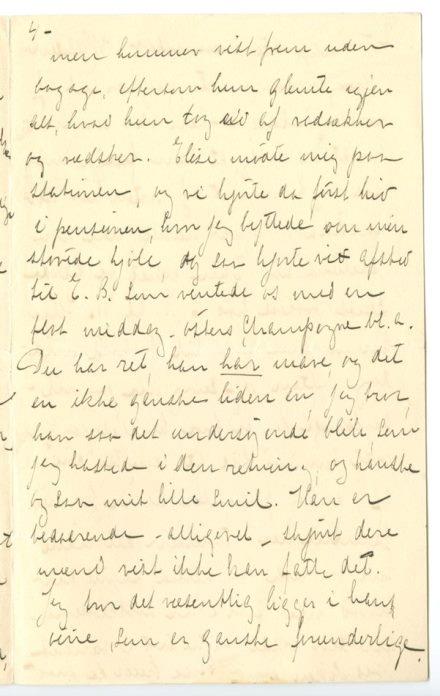 4-
men kommer vist frem uden
bagage, eftersom hun glemte igjen
alt, hvad hun tog ud af vedsækker
og vædsker. Elise mødte mig paa
stationen, og vi kjørte da først hid
i pensionen, hvor jeg byttede om min
støvede kjole, og saa kjørte vi afsted
til E. B. som ventede os med en
fest middag - østers, Champagne bl. a.
Du har ret, han har mave, og det
en ikke ganske liden en, jeg tror,
han saa det undersøgende blik, som
jeg kastede i den retning, og kanske
og saa mit lille smil. Han er
bedaarende - alligevel - skjønt dere
mænd vist ikke kan fatte det.
Jeg tror det væsentlig ligger i hans
øine, som er ganske forunderlige.